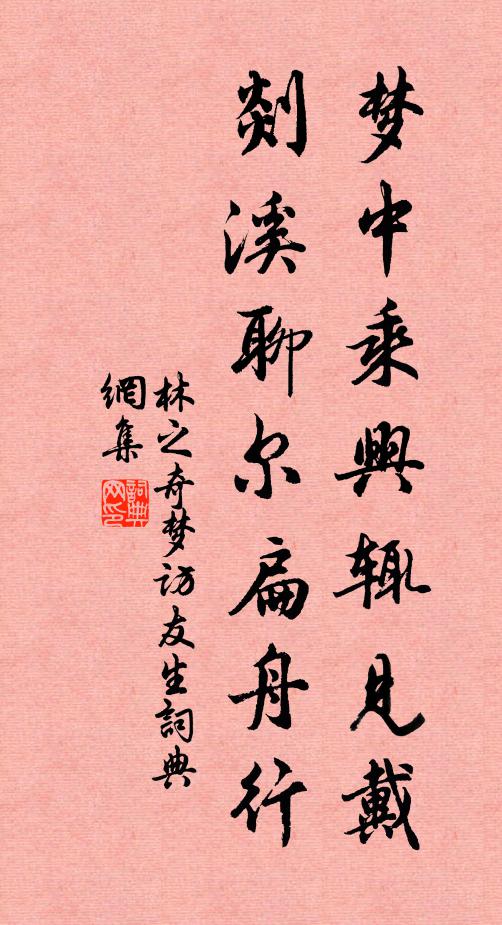 梦中乘興辄见戴
剡溪聊尔扁舟行
林之奇梦访友生詞典
網集
詞典
网印